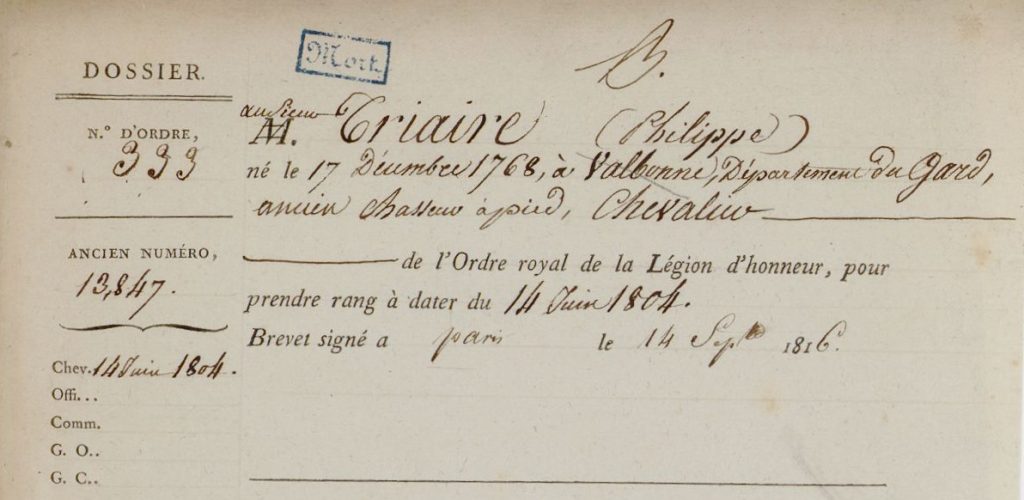 Mort.
B.
DOSSIER.
N.º D'ORDRE,
333
ANCIEN NUMÉRO,
13,847.
Chev. 14 Juin 1804.
Offi...
Comm.
G. O..
G. C..
au Sieur
M. Triaire (Philippe)
né le 17 Décembre 1768, à Valbonne, Département du Gard,
ancien chasseur à pied, Chevalier
de l'Ordre royal de la Légion d'honneur, pour
prendre rang à dater du 14 Juin 1804.
Brevet signé a paris le 14 Sept.e 1816.